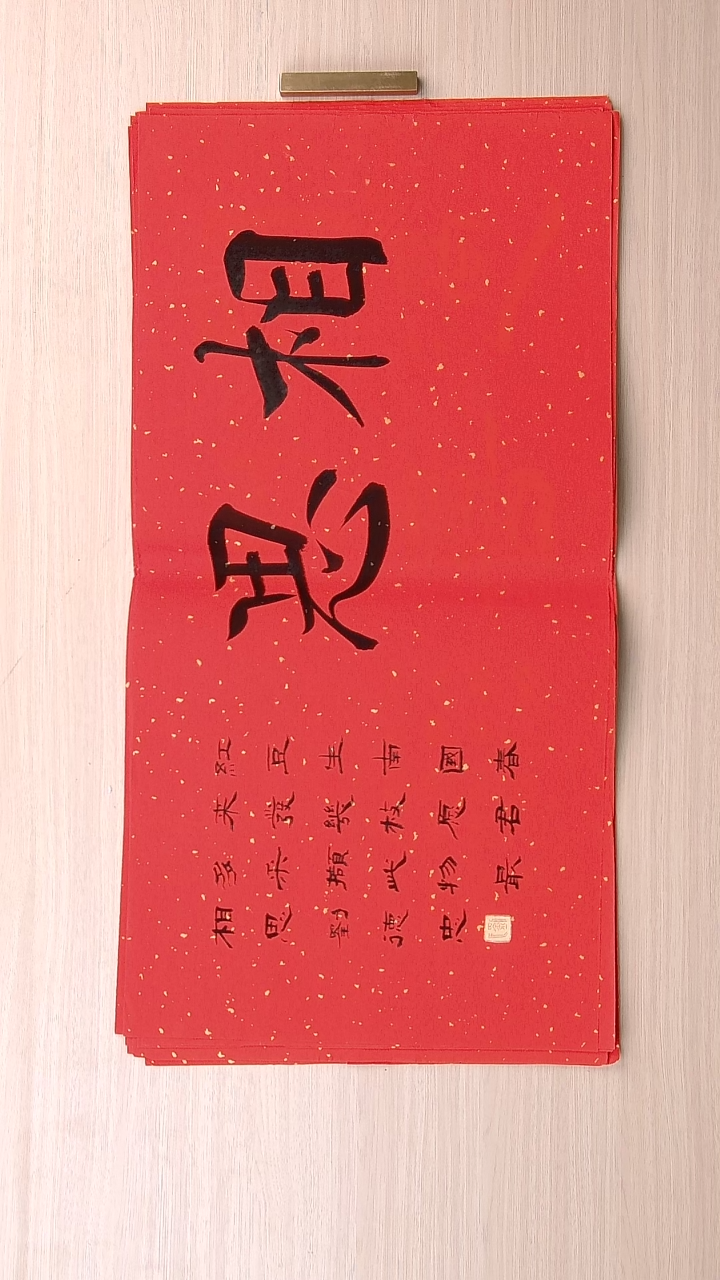 相思
紅豆生南國春
来發幾枝愿君
多采擷此物最
相思劉德忠